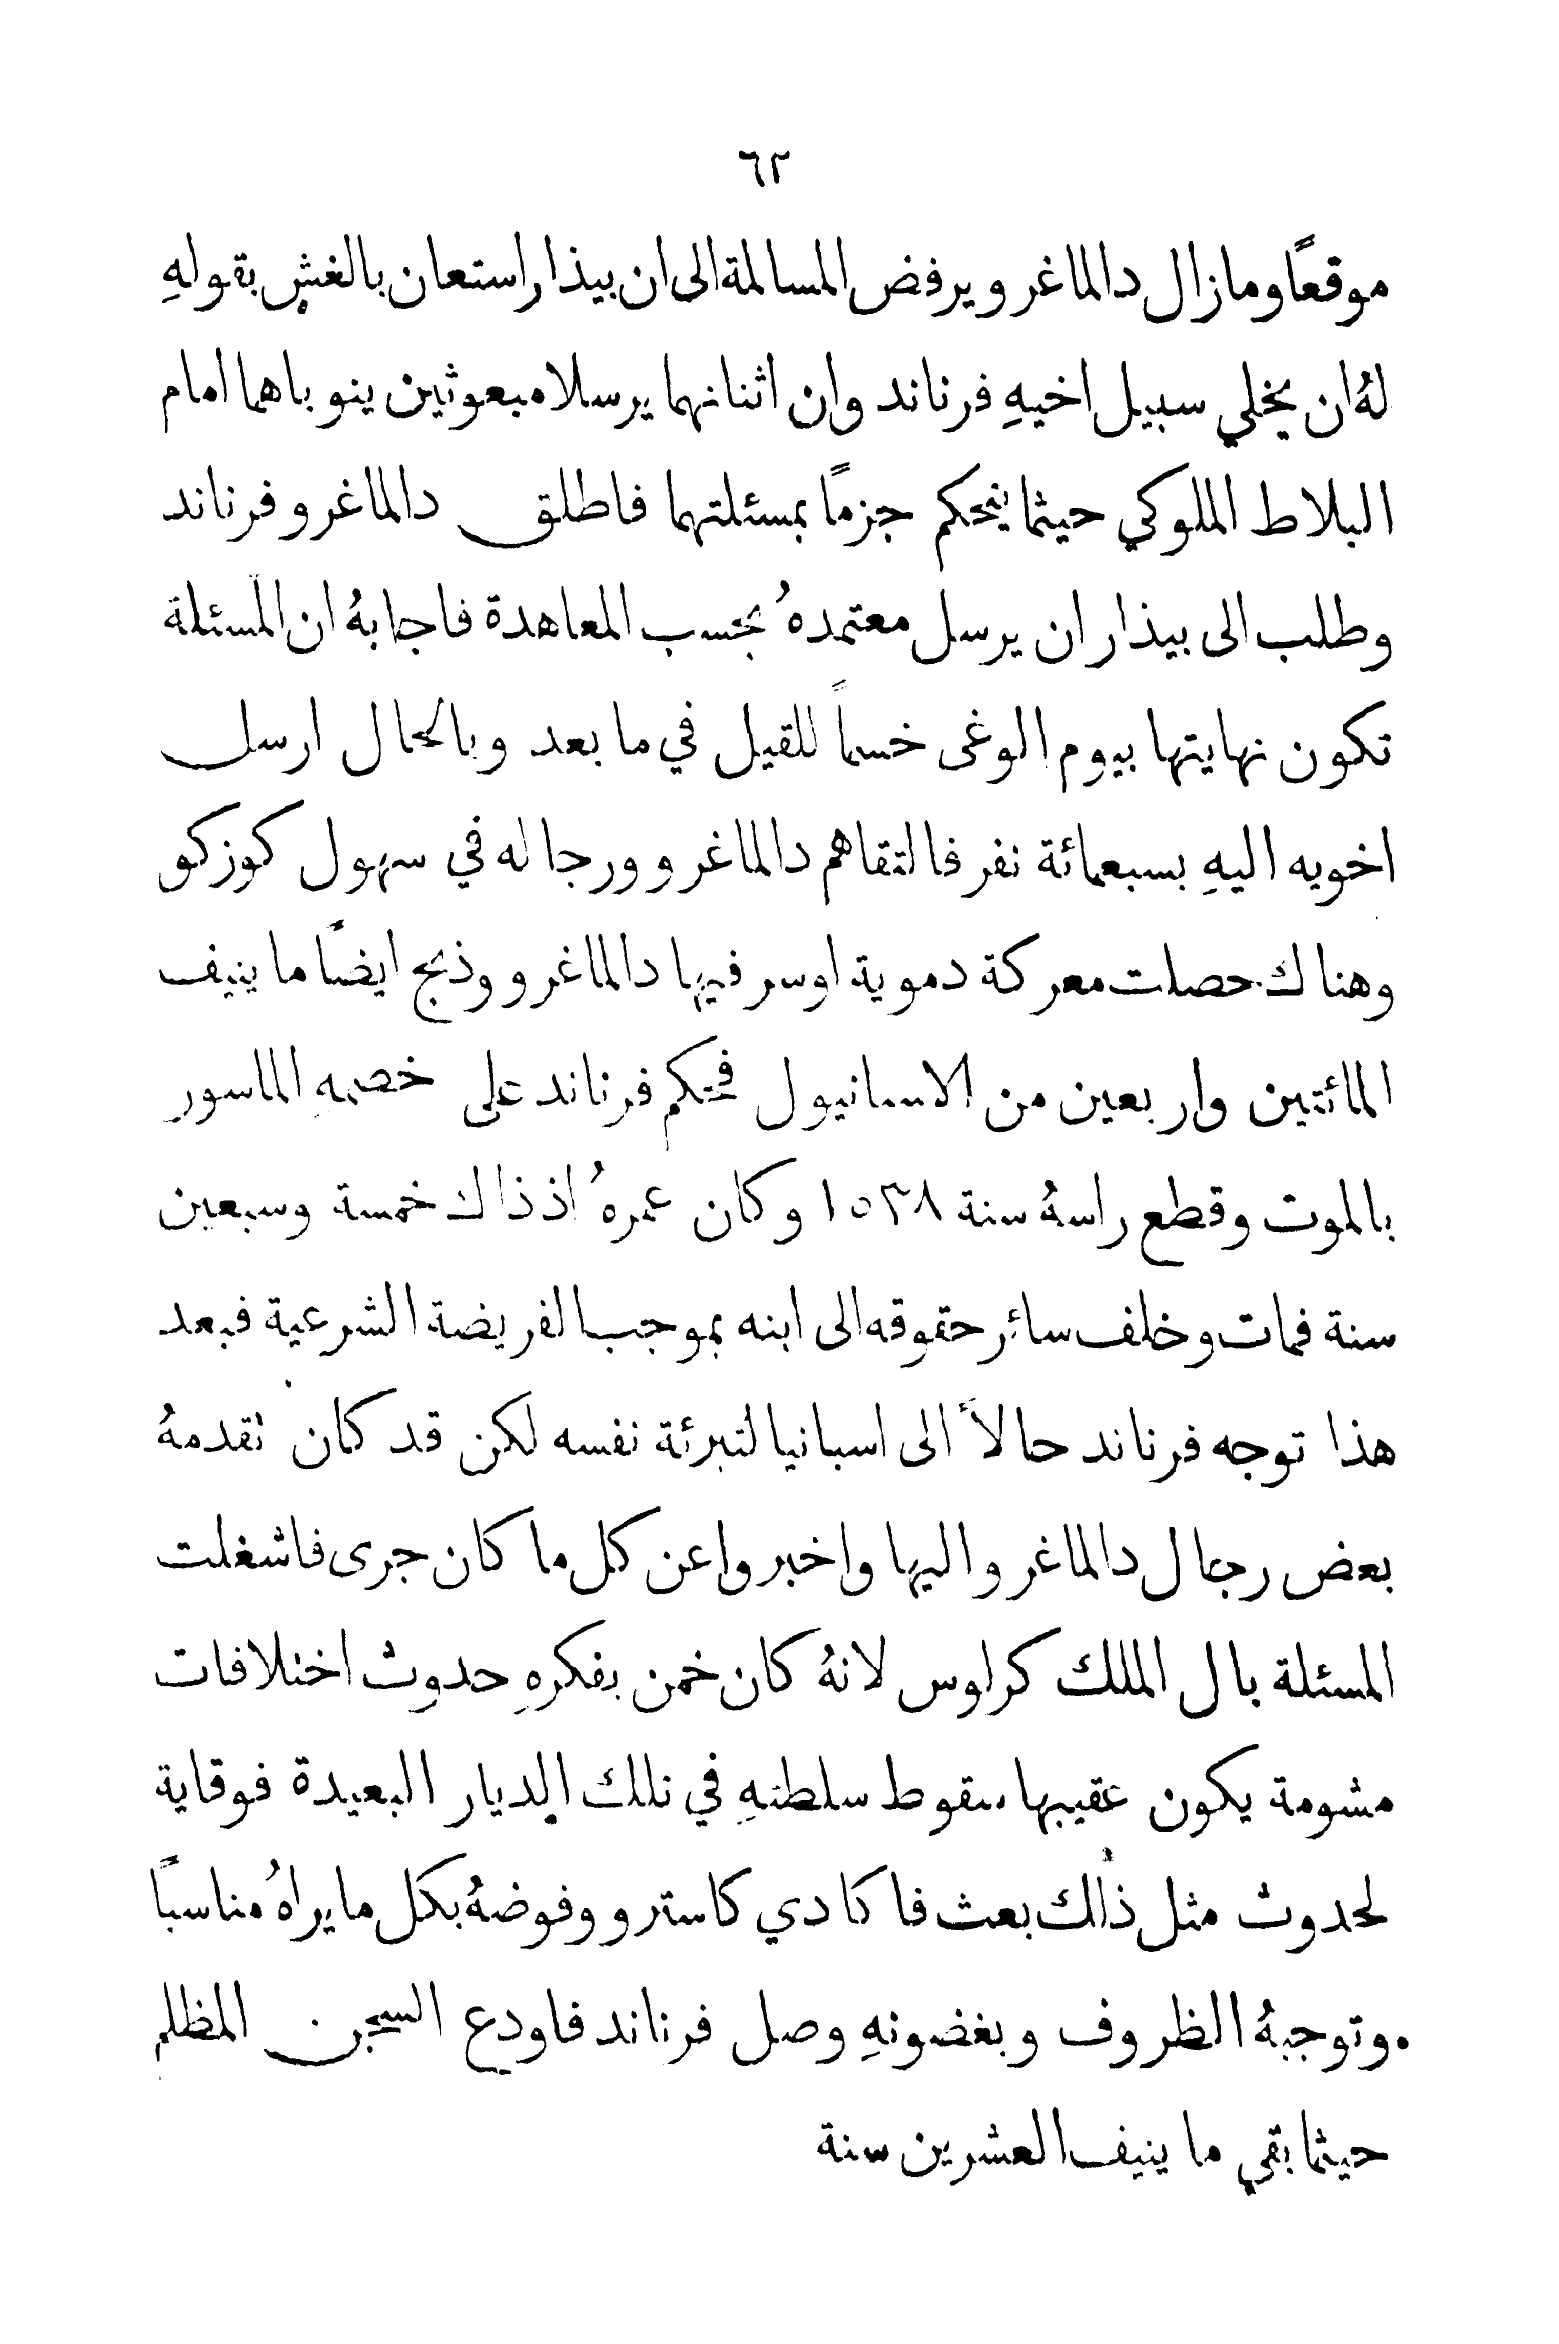 ٦٢
موقعًا وما زال دالماغرو يرفض المسالمة الى ان بيذار استعان بالغش بقولهِ
لهُ ان يخلي سبيل اخيهِ فرناند وان اثنانهما يرسلا مبعوثين ينوباهما امام
البلاط الملوكي حيثما ينحكم جزمًا بمسئلتهما فاطلق دالماغرو فرناند
وطلب الى بيذار ان يرسل معتمدهُ بحسب المعاهدة فاجابهُ ان المسئلة
تكون نهايتها بيوم الوغى خسمًا للقيل في ما بعد وبالحال ارسل
اخويه اليهِ بسبعمائة نفر فالتقاهم دالماغرو ورجاله في سهول كوزكو
وهناك حصلت معركة دموية اوسر فيها دالماغرو وذبح ايضًا ما ينيف
المائتين واربعين من الاسبانيول فحكم فرناند على خصمهِ الماسور
بالموت وقطع راسهُ سنة ١٥٣٨ وكان عمرهُ اذ ذاك خمسة وسبعين
سنة فمات وخلف سائر حقوقه الى ابنه بموجب الفريضة الشرعية فبعد
هذا توجه فرناند حالاً الى اسبانيا لتبرئة نفسه لكن قد كان تقدمهُ
بعض رجال دالماغرو اليها واخبروا عن كل ما كان جرى فاشغلت
المسئلة بال الملك كراوس لانهُ كان خمن بفكرهِ حدوث اختلافات
مشومة يكون عقيبها سقوط سلطتهِ في تلك الديار البعيدة فوقاية
لحدوث مثل ذلك بعث فاكا دي كاسترو وفوضهُ بكل ما يراهُ مناسبًا
وتوجبهُ الظروف وبغضونهِ وصل فرناند فاودع السجن المظلم
حيثما بقي ما ينيف العشرين سنة